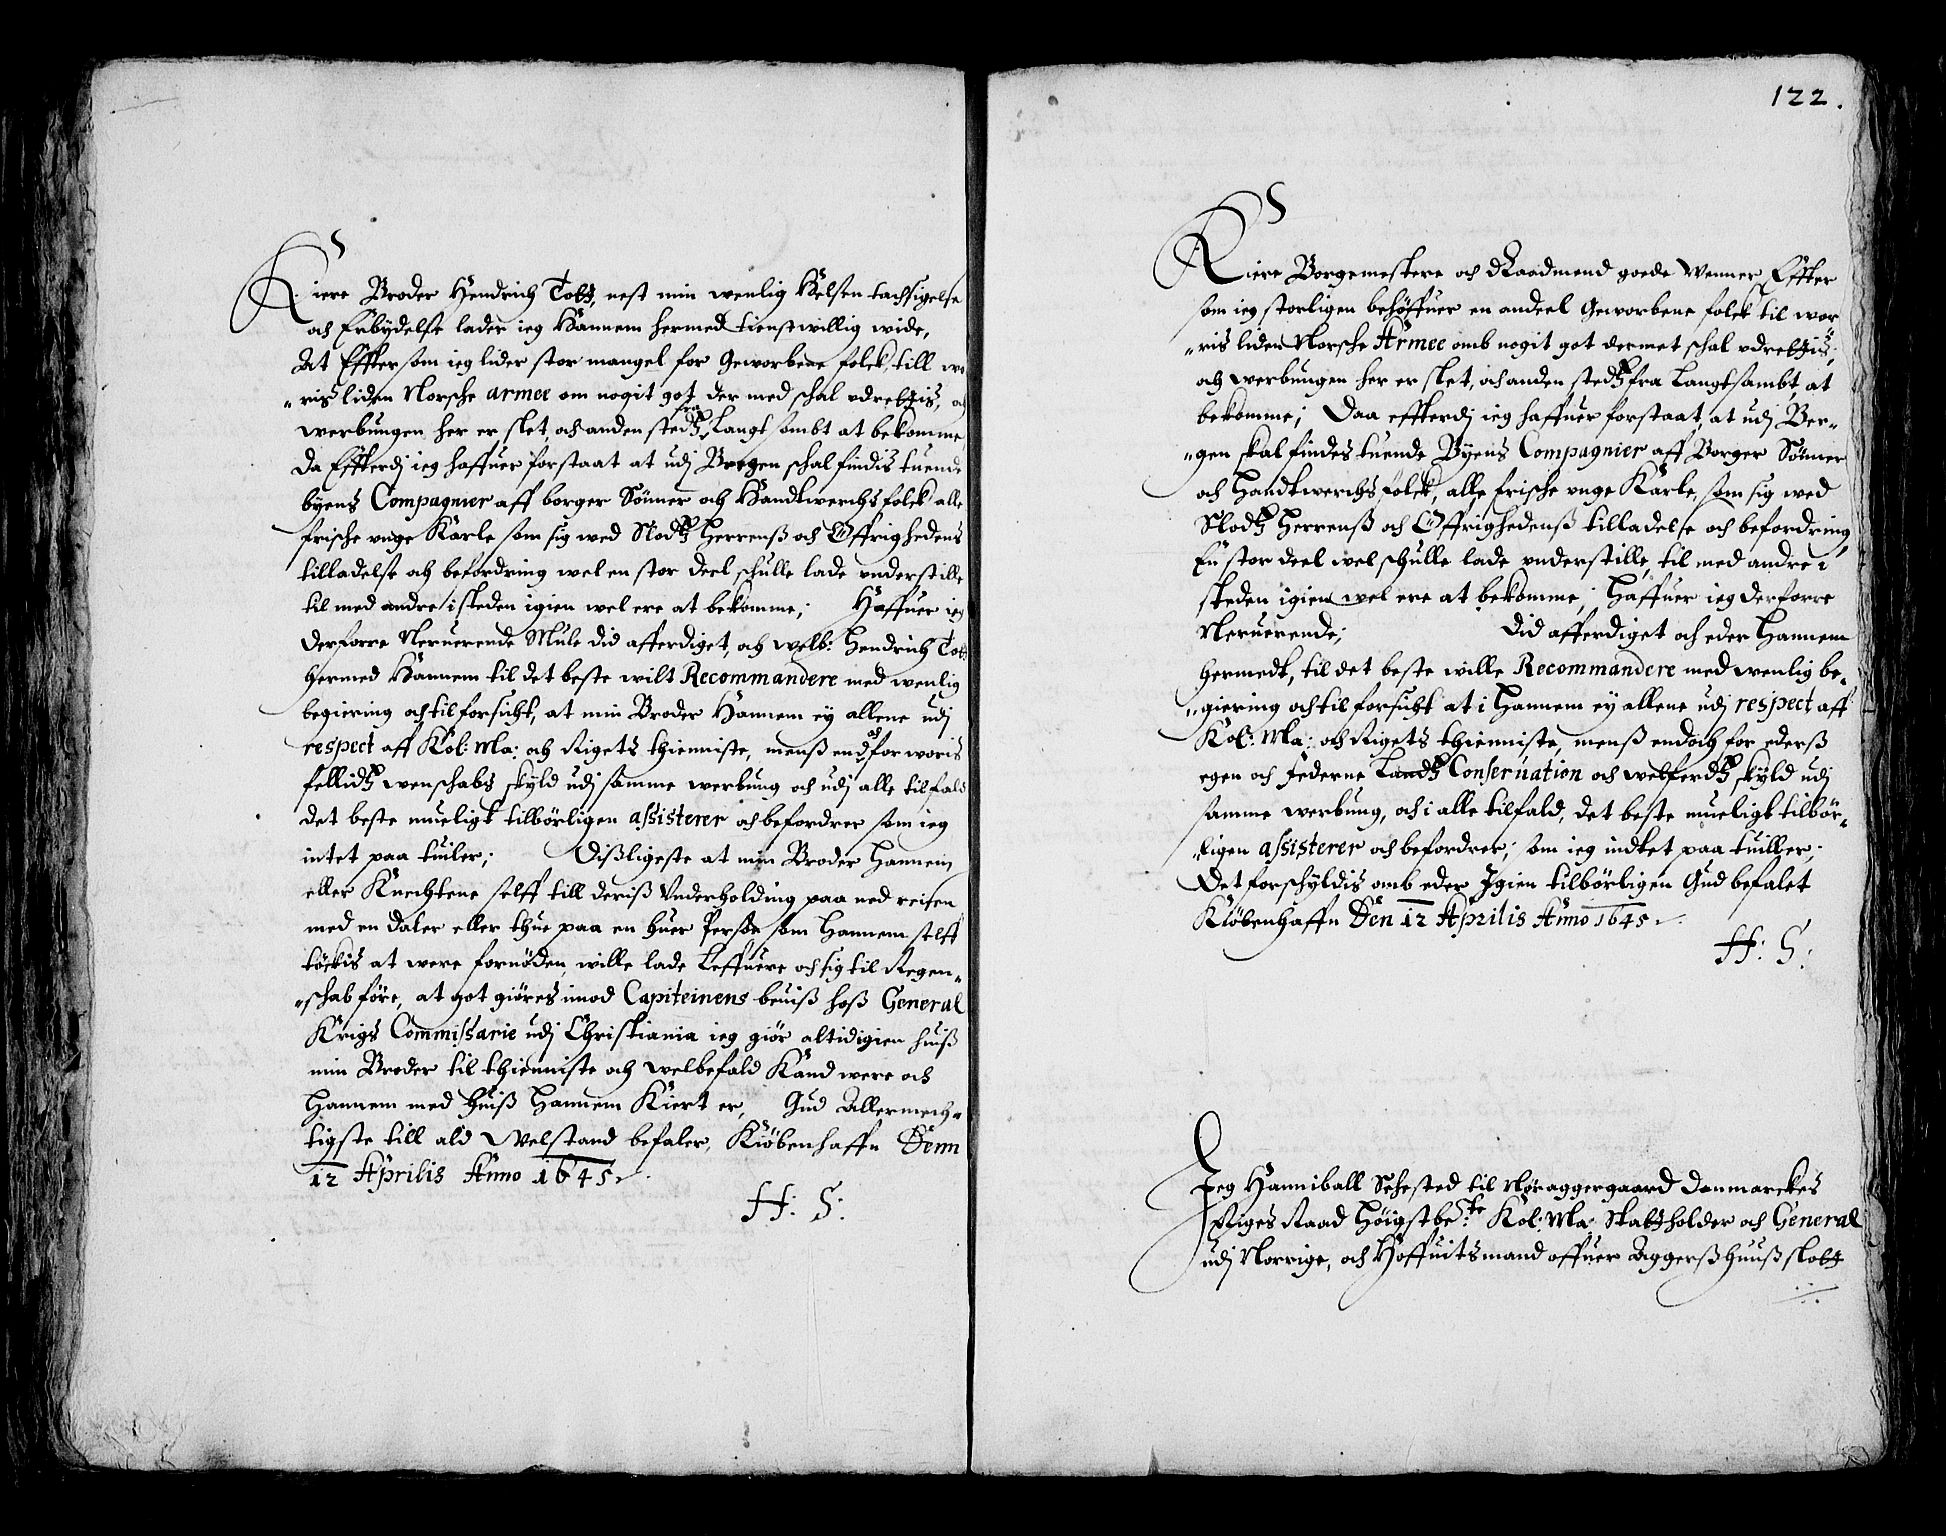 Kiere Broder Hendrich Tott, nest min wenlig Helsen tachsigelse
och Erbydelse lader ieg Hannem hermed tienstwillig wide,
At Effter som ieg lider stor mangel for Geworbene folck, till wo
"ris liden Norsche armee om nogit got der med schal udrettis, och
werbungen her er slet, och anden stedtz fra Langt sambt at bekomme
Da Effterdj ieg haffuer forstaat at udj Bergen schal findis tuende
byens Compagnier aff borger Sönner och Handtwerchs folck alle
frische unge Karle som sig wed Slodtz Herrenß och Öffrighedens
tilladelse och befordring wel en stor deel schulle lade understille
til med andre i steden igien wel ere at bekomme; Haffuer ieg
derforre Neruerende Mule did afferdiget, och welb: Hendrich Tott
hermed Hannem til det beste wilt Recommandere med wenlig
begiering och tilforsicht, at min Broder Hannem ey allene udj
respect aff Kol: Ma: och Rigets thienniste, menß end och for woris
fellidtz wenschabs skyld udj samme werbung och udj alle tilfald
det beste mueligt tilbörligen assisterer och befordrer som ieg
intet paa tuiler; Dißligeste at min Broder Hannem
eller Knechtene selff till deriß Underholding paa ned reisen
med en daler eller thue paa en huer Person som Hannem selff
töckis at were fornöden, wille lade Leffuere och sig til Regen-
"schab före, at got giöres imod Capiteinens beuiß hoß General
Krigs Commissarie udj Christiania ieg giör altid igien huiß
min Broder til thienniste och welbefald Kand were och
Hannem med huiß Hannem Kiert er, Gud Allermech-
tigste till ald Welstand befaler, Kiöbenhaffn Denn
12 Aprilis Anno 1645.
H: S:
122.
Kiere Borgemestere och Raadmend goede Wenner Effter
som ieg storligen behöffuer en andeel Geworbene folck til wor
"ris liden Norsche Armee omb nogit got dermet schal udrettis;
och werbungen her er slet, och anden stedtz fra Langt sambt, at
bekomme; Daa effterdj ieg haffuer forstaat, at udj Ber-
"gen skal findes tuende Byens Compagnier aff Borger Sönner
och Handtwerchs folck, alle frische unge Karle, som sig wed
Slodtz Herrenß och Öffrighedenß tilladelse och befordring
En stor deel wel schulle lade understille, til med andre i
steden igien wel ere at bekomme; Haffuer ieg derforre
Neruerende; did afferdiget och eder Hannem
hermedt, til det beste wille Recommandere med wenlig be-
"giering och tilforsicht at i Hannem ey allene udj respect aff
Kol: Ma: och Rigets thienniste, menß endoch for ederß
egen och Federne Landtz Conseruation och welferdtz skyld udj
samme werbung, och i alle tilfald, det beste mueligt tilbör-
"ligen assisterer och befordrer; som ieg indtet paa tuiller;
Det forschyldis omb eder Igien tilbörligen Gud befalet
Kiöbenhaffn Den 12 Aprilis Anno 1645.
H: S:
Jeg Hanniball Sehested til Nöraggergaard Danmarckes
Riges Raad Höigstbe:te Kol: Ma: Stattholder och General
udj Norrige, och Höffuitsmand offuer Aggerßhuuß slott